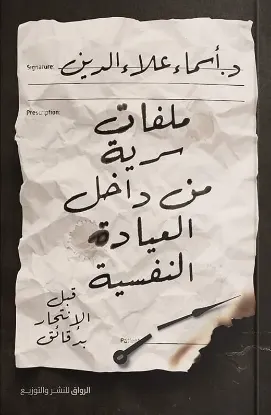 Signature:
د. أسماء علاء الدين
Prescription:
ملفات
سرية
من داخل
العيادة
النفسية
قبل
الإنتحار
بدقائق
الرواق للنشر والتوزيع